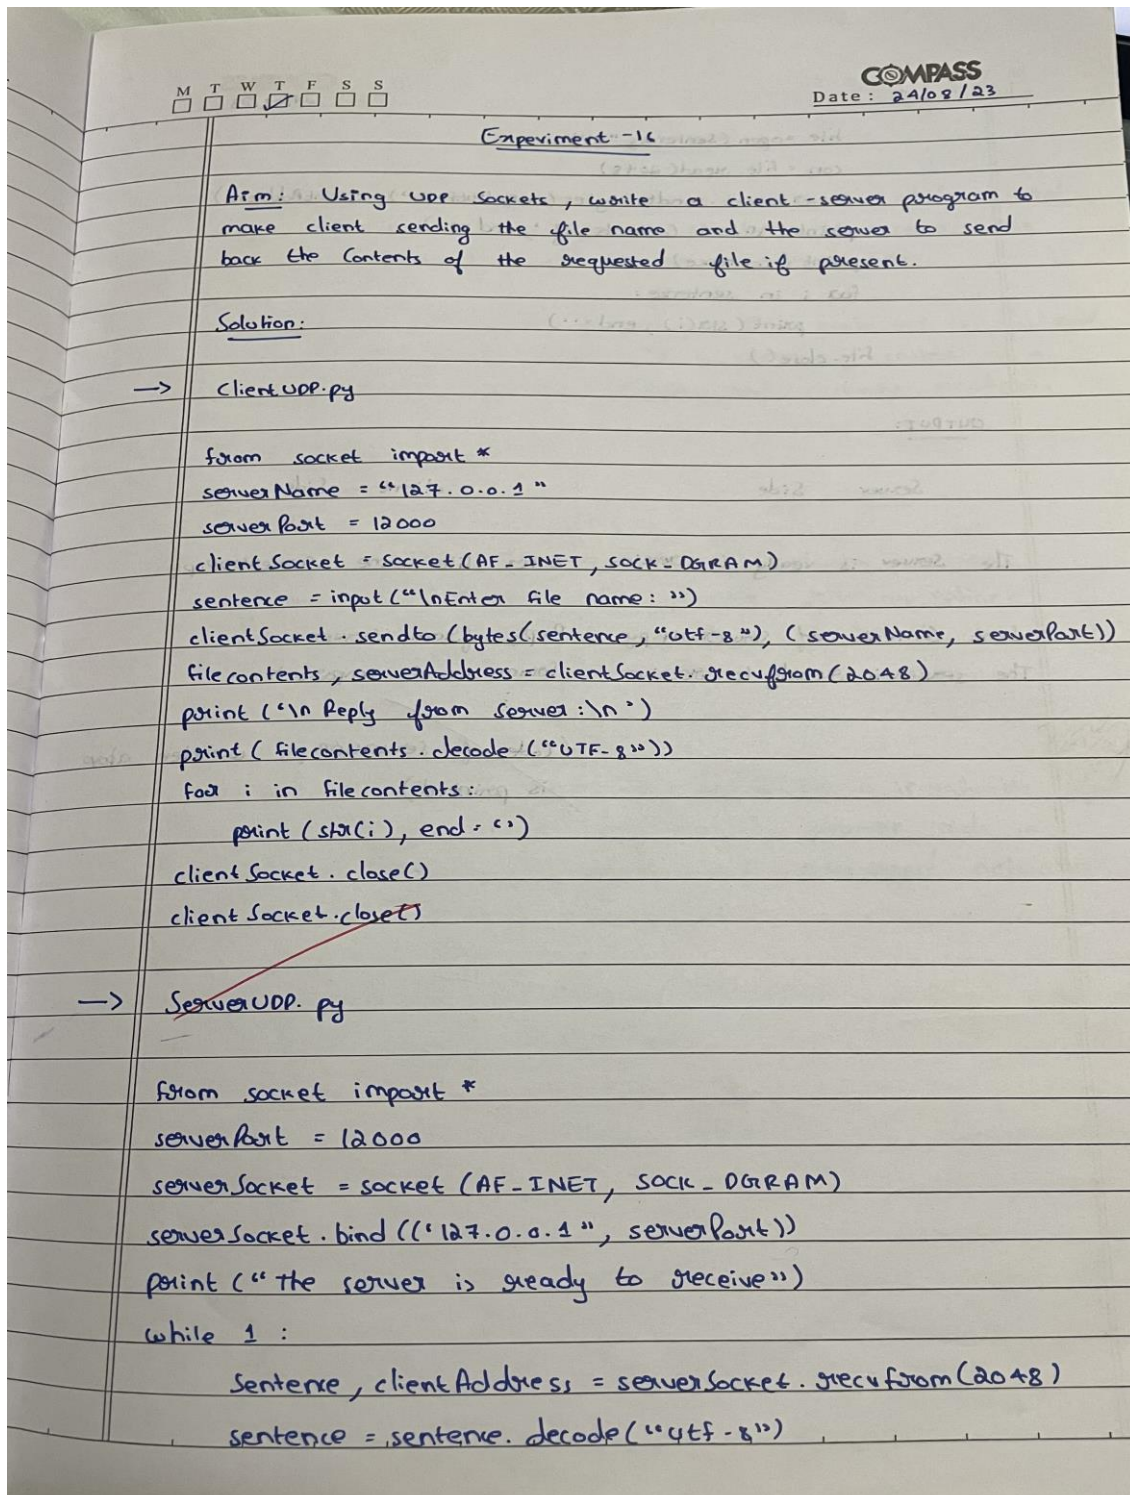 M T W T F S S
COMPASS
Date : 24/08/23
Experiment -16
Aim: Using UDP Sockets, write a client-server program to
make client sending the file name and the server to send
back the Contents of the requested file if present.
Solution:
→ ClientUDP.py
from socket import *
serverName = "127.0.0.1"
serverPort = 12000
clientSocket = socket(AF_INET, SOCK_DGRAM)
sentence = input("\nEnter file name: ")
clientSocket.sendto(bytes(sentence, "utf-8"), (serverName, serverPort))
filecontents, serverAddress = clientSocket.recvfrom(2048)
print('\n Reply from server:\n')
print(filecontents.decode("UTF-8"))
for i in filecontents:
print(str(i), end = '')
clientSocket.close()
clientSocket.close()
→ ServerUDP.py
from socket import *
serverPort = 12000
serverSocket = socket (AF_INET, SOCK_DGRAM)
serverSocket.bind(('127.0.0.1", serverPort))
print("the server is ready to receive")
while 1 :
Sentence, clientAddress = serverSocket.recvfrom(2048)
sentence = sentence.decode("utf-8")